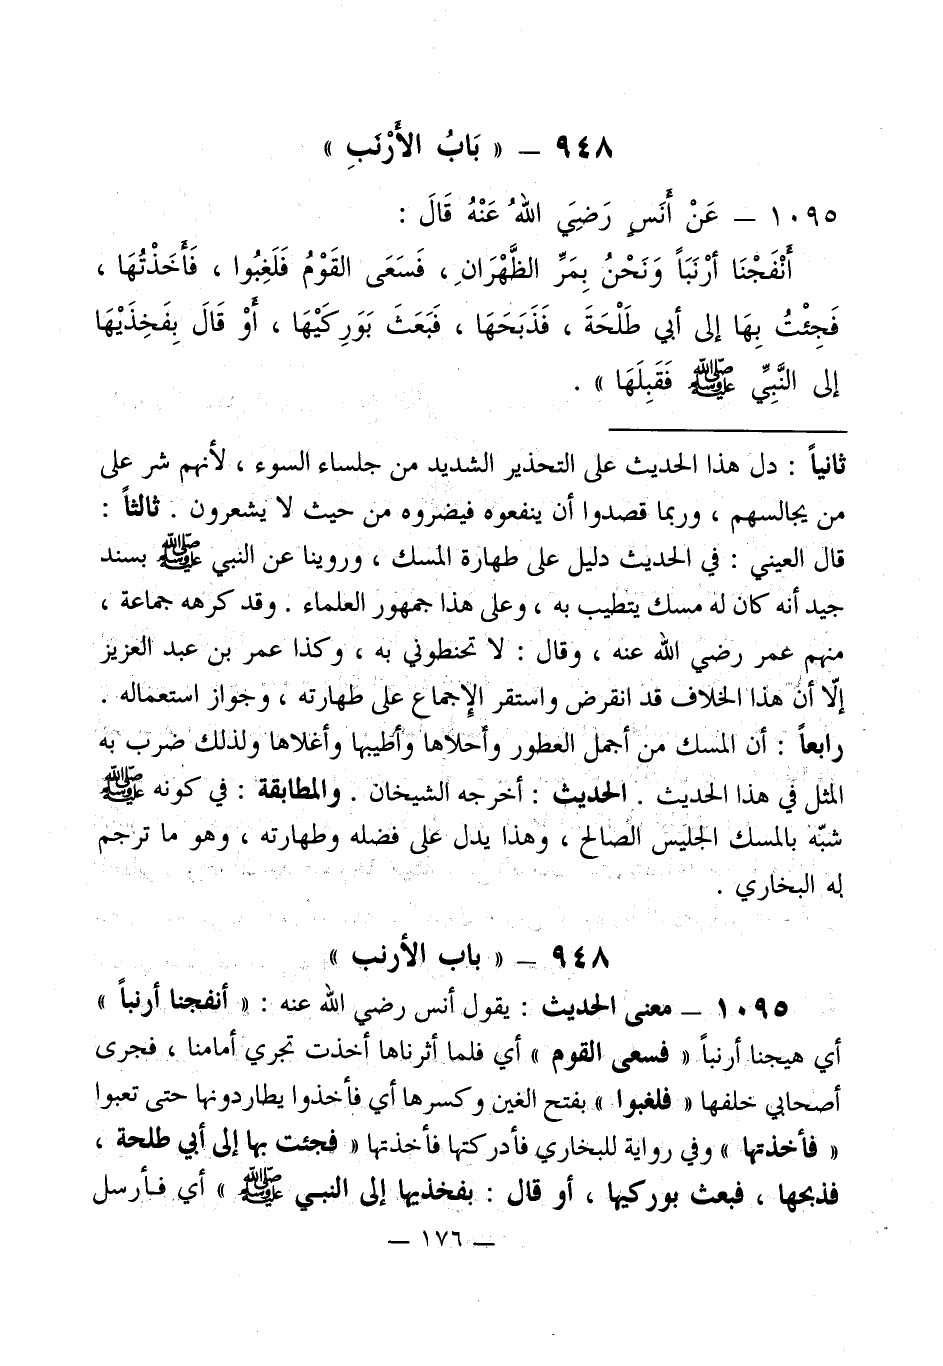 ٩٤٨ ــ « بَابُ الأَرْنَبِ »
١٠٩٥ ــ عَنْ أَنَسٍ رَضِيَ اللهُ عَنْهُ قَالَ :
أَنْفَجْنَا أرْنَباً وَنَحْنُ بِمَرِّ الظَّهْرَانِ ، فَسَعَى القَوْمُ فَلَغِبُوا ، فَأَخَذْتُهَا ،
فَجِئْتُ بِهَا إلى أبي طَلْحَةَ ، فَذَبَحَهَا ، فَبَعَثَ بَوَرِكَيْهَا ، أَوْ قَالَ بِفَخِذَيْهَا
إلى النَّبِيِّ ﷺ فَقَبِلَهَا » .
ثانياً : دل هذا الحديث على التحذير الشديد من جلساء السوء ، لأنهم شر على
من يجالسهم ، وربما قصدوا أن ينفعوه فيضروه من حيث لا يشعرون . ثالثاً :
قال العيني : في الحديث دليل على طهارة المسك ، وروينا عن النبي ﷺ بسند
جيد أنه كان له مسك يتطيب به ، وعلى هذا جمهور العلماء . وقد كرهه جماعة ،
منهم عمر رضي الله عنه ، وقال : لا تحنطوني به ، وكذا عمر بن عبد العزيز
إلّا أن هذا الخلاف قد انقرض واستقر الإجماع على طهارته ، وجواز استعماله .
رابعاً : أن المسك من أجمل العطور وأحلاها وأطيبها وأغلاها ولذلك ضرب به
المثل في هذا الحديث . الحديث : أخرجه الشيخان . والمطابقة : في كونه ﷺ
شبّه بالمسك الجليس الصالح ، وهذا يدل على فضله وطهارته ، وهو ما ترجم
له البخاري .
٩٤٨ ــ « باب الأرنب »
١٠٩٥ ــ معنى الحديث : يقول أنس رضي الله عنه : « أنفجنا أرنباً »
أي هيجنا أرنباً « فسعى القوم » أي فلما أثرناها أخذت تجري أمامنا ، فجرى
أصحابي خلفها « فلغبوا » بفتح الغين وكسرها أي فأخذوا يطاردونها حتى تعبوا
« فأخذتها » وفي رواية للبخاري فأدركتها فأخذتها « فجئت بها إلى أبي طلحة ،
فذبحها ، فبعث بوركيها ، أو قال : بفخذيها إلى النبي ﷺ » أي فأرسل
ــ ١٧٦ ــ